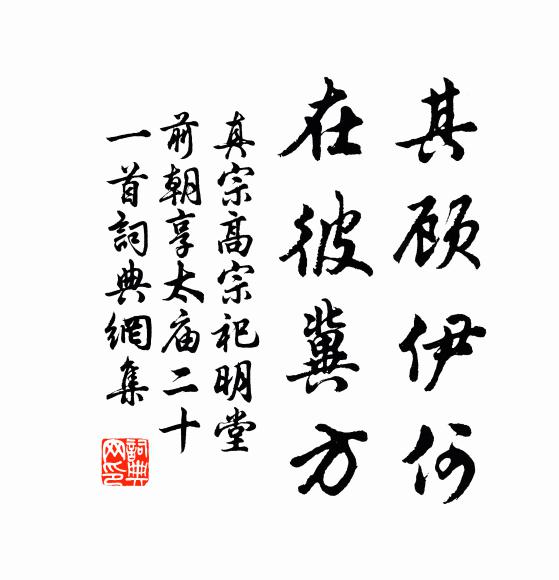 其顾伊何
在彼冀方
真宗高宗祀明堂
前朝享太庙二十
一首詞典網集
詞典
网印